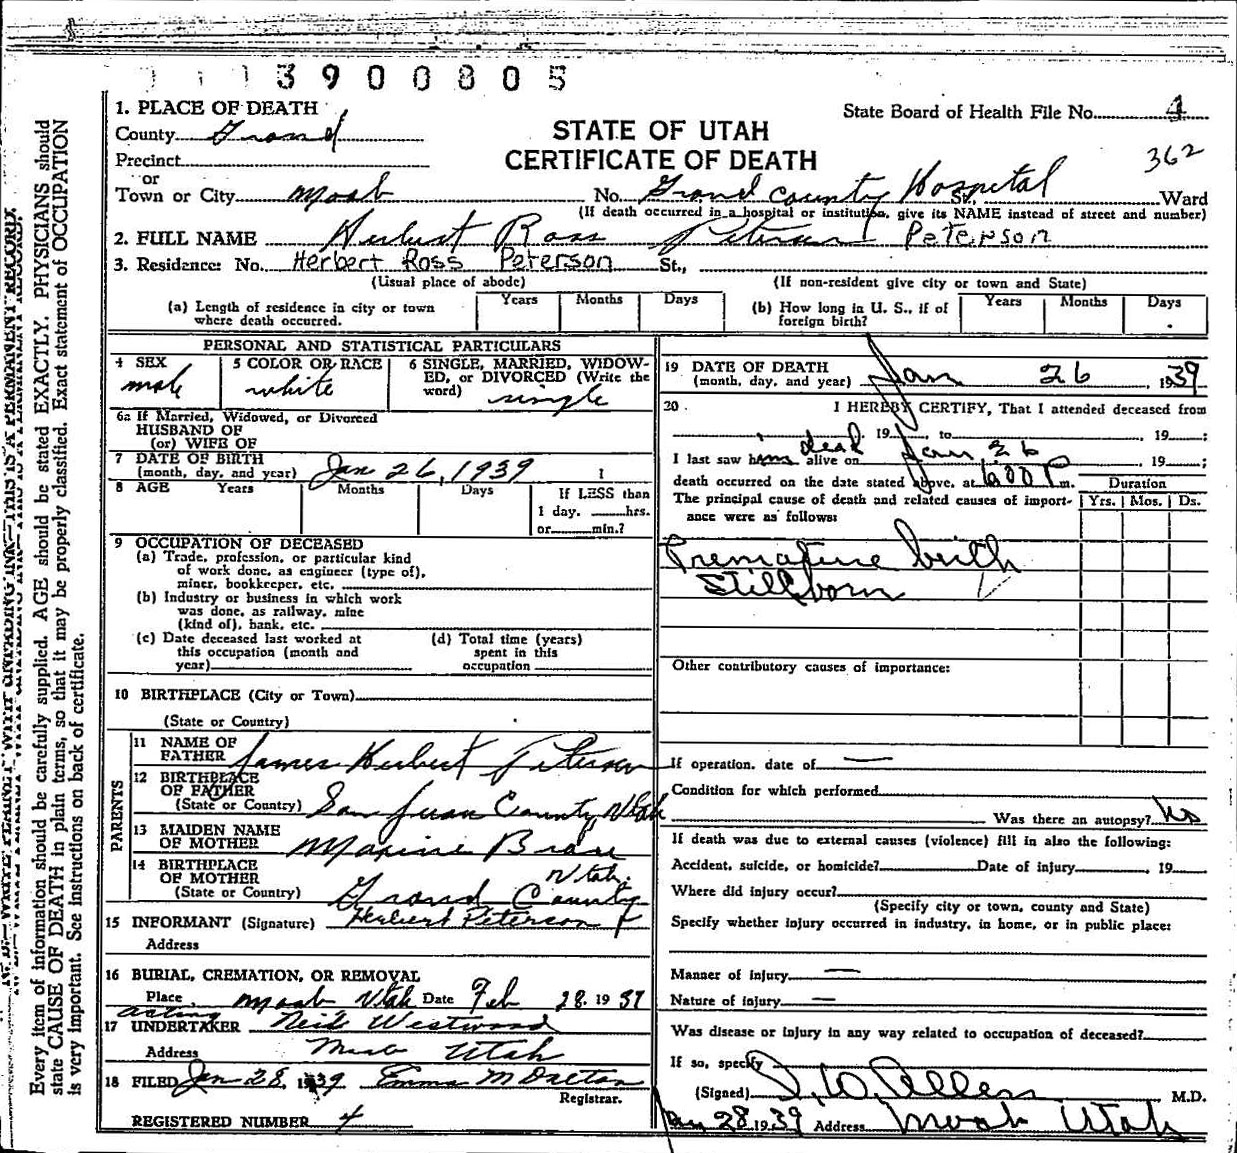 3900805
1. PLACE OF DEATH
State Board of Health File No. 4
County Grand
STATE OF UTAH
CERTIFICATE OF DEATH
362
Precinct
or
Town or City Moab No. Grand County Hospital St., Ward
(If death occurred in a hospital or institution, give its NAME instead of street and number)
2. FULL NAME Herbert Ross Peterson Peterson
3. Residence: No. Herbert Ross Peterson St.,
(Usual place of abode) (If non-resident give city or town and State)
(a) Length of residence in city or town where death occurred. Years Months Days
(b) How long in U. S., if of foreign birth? Years Months Days
PERSONAL AND STATISTICAL PARTICULARS
4 SEX male
5 COLOR OR RACE white
6 SINGLE, MARRIED, WIDOWED, or DIVORCED (Write the word) single
6a If Married, Widowed, or Divorced
HUSBAND OF
(or) WIFE OF
7 DATE OF BIRTH
(month, day, and year) Jan 26, 1939
8 AGE Years Months Days If LESS than
1 day, hrs.
or min.?
9 OCCUPATION OF DECEASED
(a) Trade, profession, or particular kind
of work done, as engineer (type of),
miner, bookkeeper, etc.
(b) Industry or business in which work
was done, as railway, mine
(kind of), bank, etc.
(c) Date deceased last worked at
this occupation (month and
year)
(d) Total time (years)
spent in this
occupation
10 BIRTHPLACE (City or Town)
(State or Country)
PARENTS
11 NAME OF
FATHER James Herbert Peterson
12 BIRTHPLACE
OF FATHER
(State or Country) San Juan County, Utah
13 MAIDEN NAME
OF MOTHER Maxine
14 BIRTHPLACE
OF MOTHER Utah.
(State or Country) Grand County
15 INFORMANT (Signature) Herbert Peterson
Address
16 BURIAL, CREMATION, OR REMOVAL
Place Moab Utah Date Feb 28 1937
acting
17 UNDERTAKER Westwood
Address Moab Utah
18 FILED Jan 28, 1939 Emma M Dalton
Registrar.
REGISTERED NUMBER 4
19 DATE OF DEATH
(month, day, and year) Jan 26 1939
20 I HEREBY CERTIFY, That I attended deceased from
19 , to , 19 ;
dead
I last saw him alive on Jan 26 19 ;
death occurred on the date stated above, at 6:00 P m.
Duration
The principal cause of death and related causes of import- Yrs. Mos. Ds.
ance were as follows:
Premature birth
Stillborn
Other contributory causes of importance:
If operation, date of —
Condition for which performed
Was there an autopsy? No
If death was due to external causes (violence) fill in also the following:
Accident, suicide, or homicide? Date of injury , 19
Where did injury occur?
(Specify city or town, county and State)
Specify whether injury occurred in industry, in home, or in public place:
Manner of injury —
Nature of injury —
Was disease or injury in any way related to occupation of deceased?
If so, specify
(Signed) Allen M.D.
Jan 28 1939 Address Moab Utah
Every item of information should be carefully supplied. AGE should be stated EXACTLY. PHYSICIANS should
state CAUSE OF DEATH in plain terms, so that it may be properly classified. Exact statement of OCCUPATION
is very important. See instructions on back of certificate.